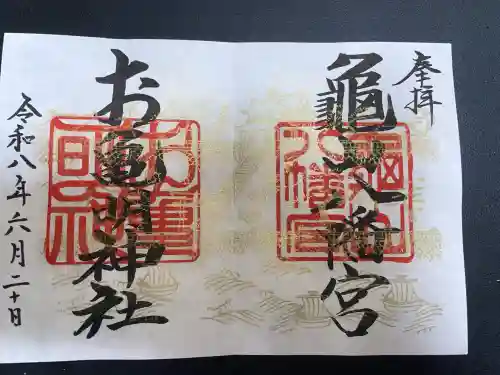 奉拝
龜山八幡宮
お亀明神社
令和八年六月二十日